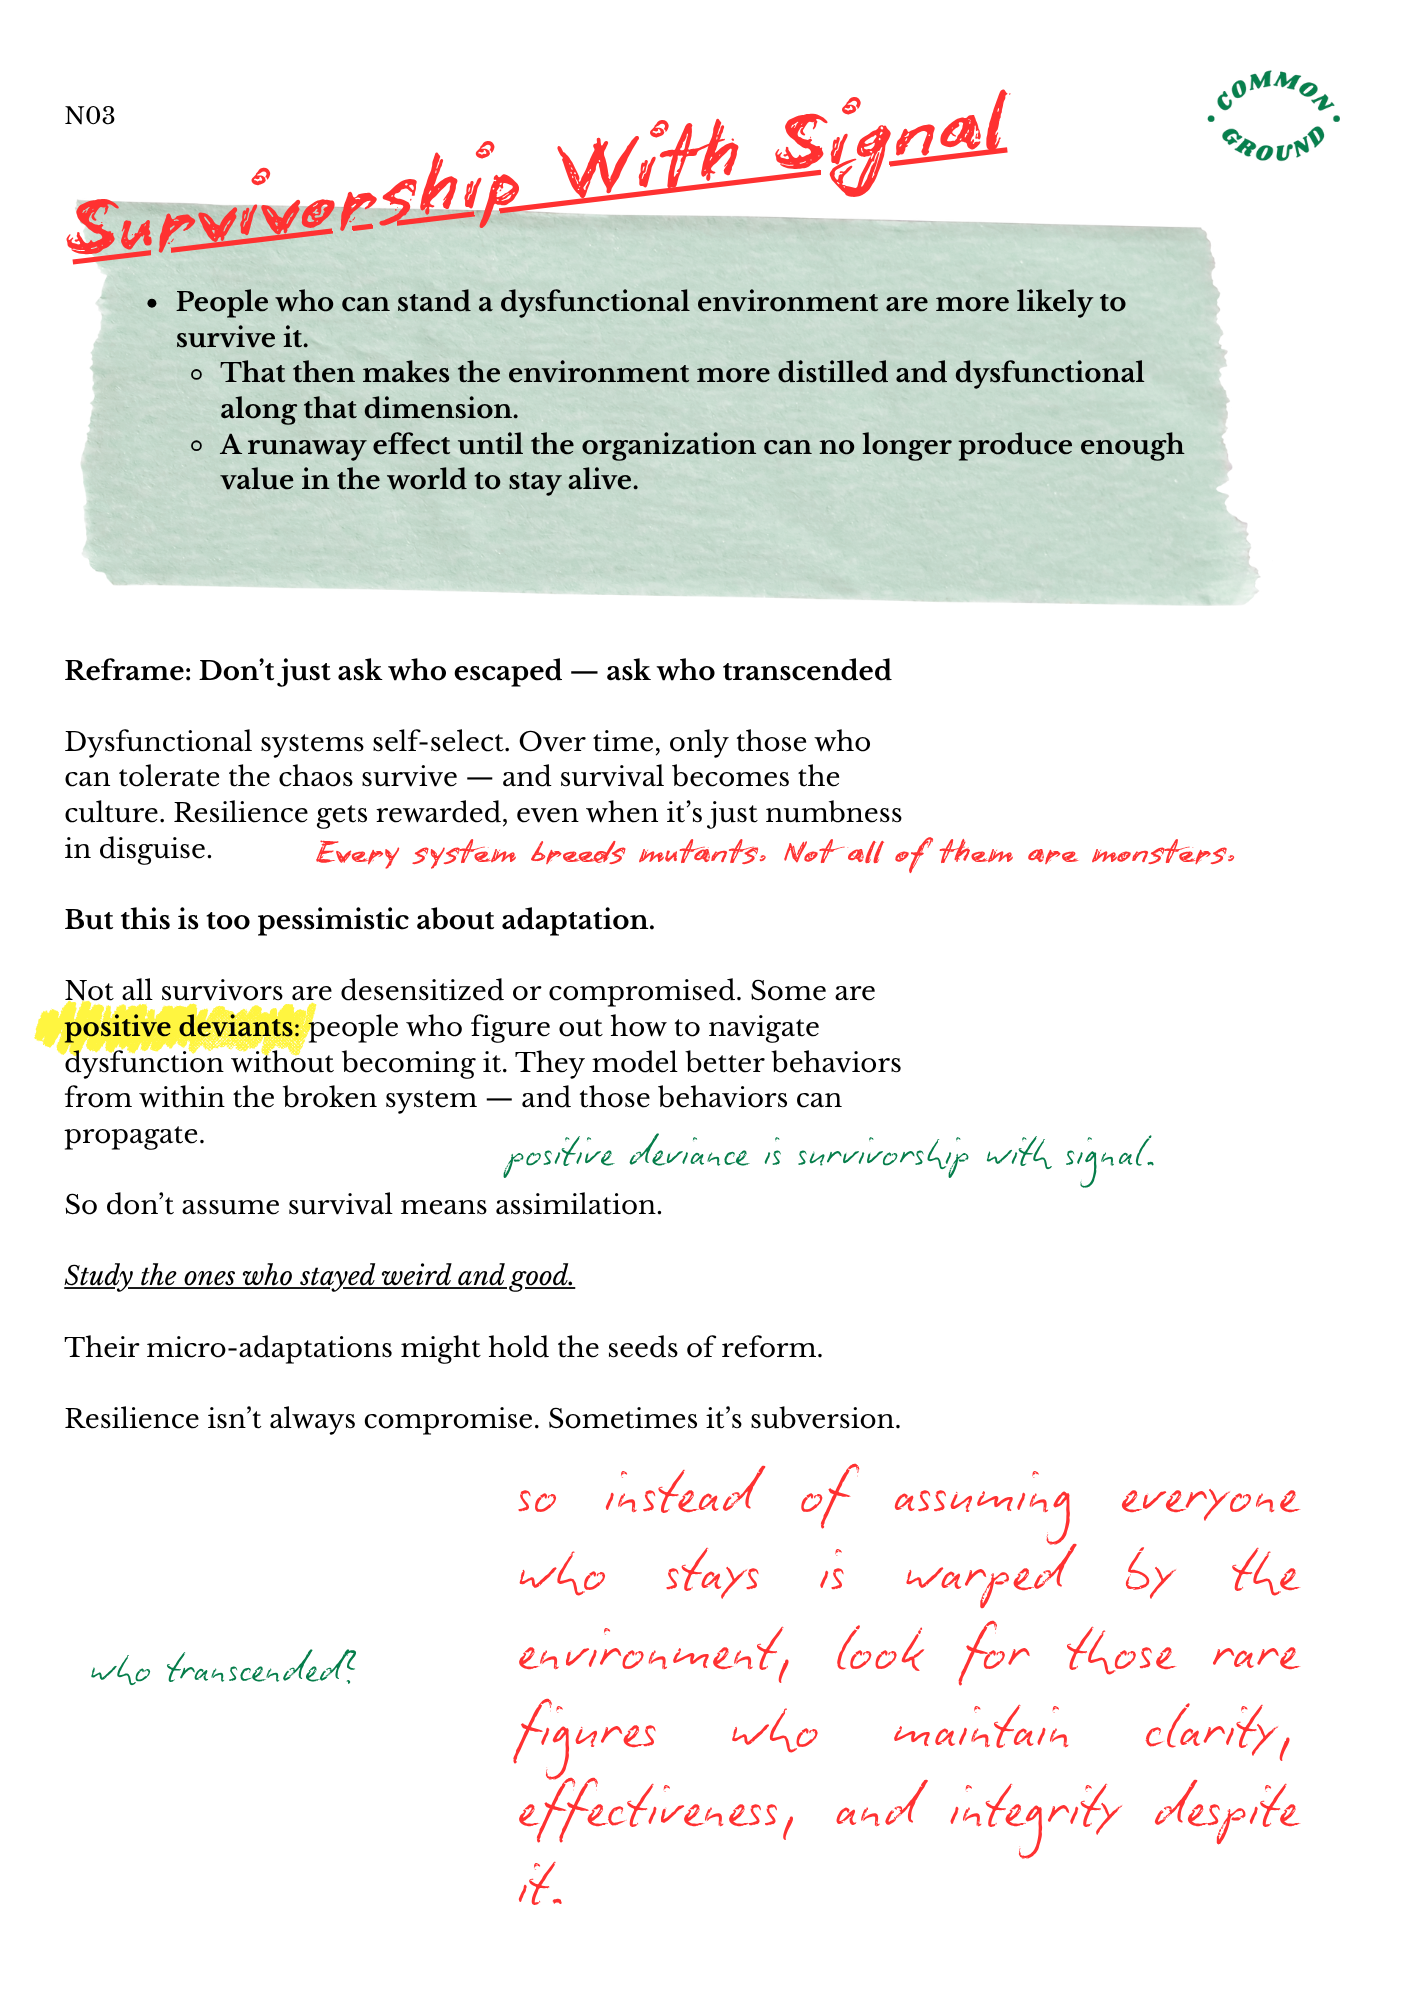 N03
COMMON
GROUND
Survivorship With Signal
• People who can stand a dysfunctional environment are more likely to
survive it.
◦ That then makes the environment more distilled and dysfunctional
along that dimension.
◦ A runaway effect until the organization can no longer produce enough
value in the world to stay alive.
Reframe: Don’t just ask who escaped — ask who transcended
Dysfunctional systems self-select. Over time, only those who
can tolerate the chaos survive — and survival becomes the
culture. Resilience gets rewarded, even when it’s just numbness
in disguise.
Every system breeds mutants. Not all of them are monsters.
But this is too pessimistic about adaptation.
Not all survivors are desensitized or compromised. Some are
positive deviants: people who figure out how to navigate
dysfunction without becoming it. They model better behaviors
from within the broken system — and those behaviors can
propagate.
positive deviance is survivorship with signal.
So don’t assume survival means assimilation.
Study the ones who stayed weird and good.
Their micro-adaptations might hold the seeds of reform.
Resilience isn’t always compromise. Sometimes it’s subversion.
who transcended?
so instead of assuming everyone
who stays is warped by the
environment, look for those rare
figures who maintain clarity,
effectiveness, and integrity despite
it.